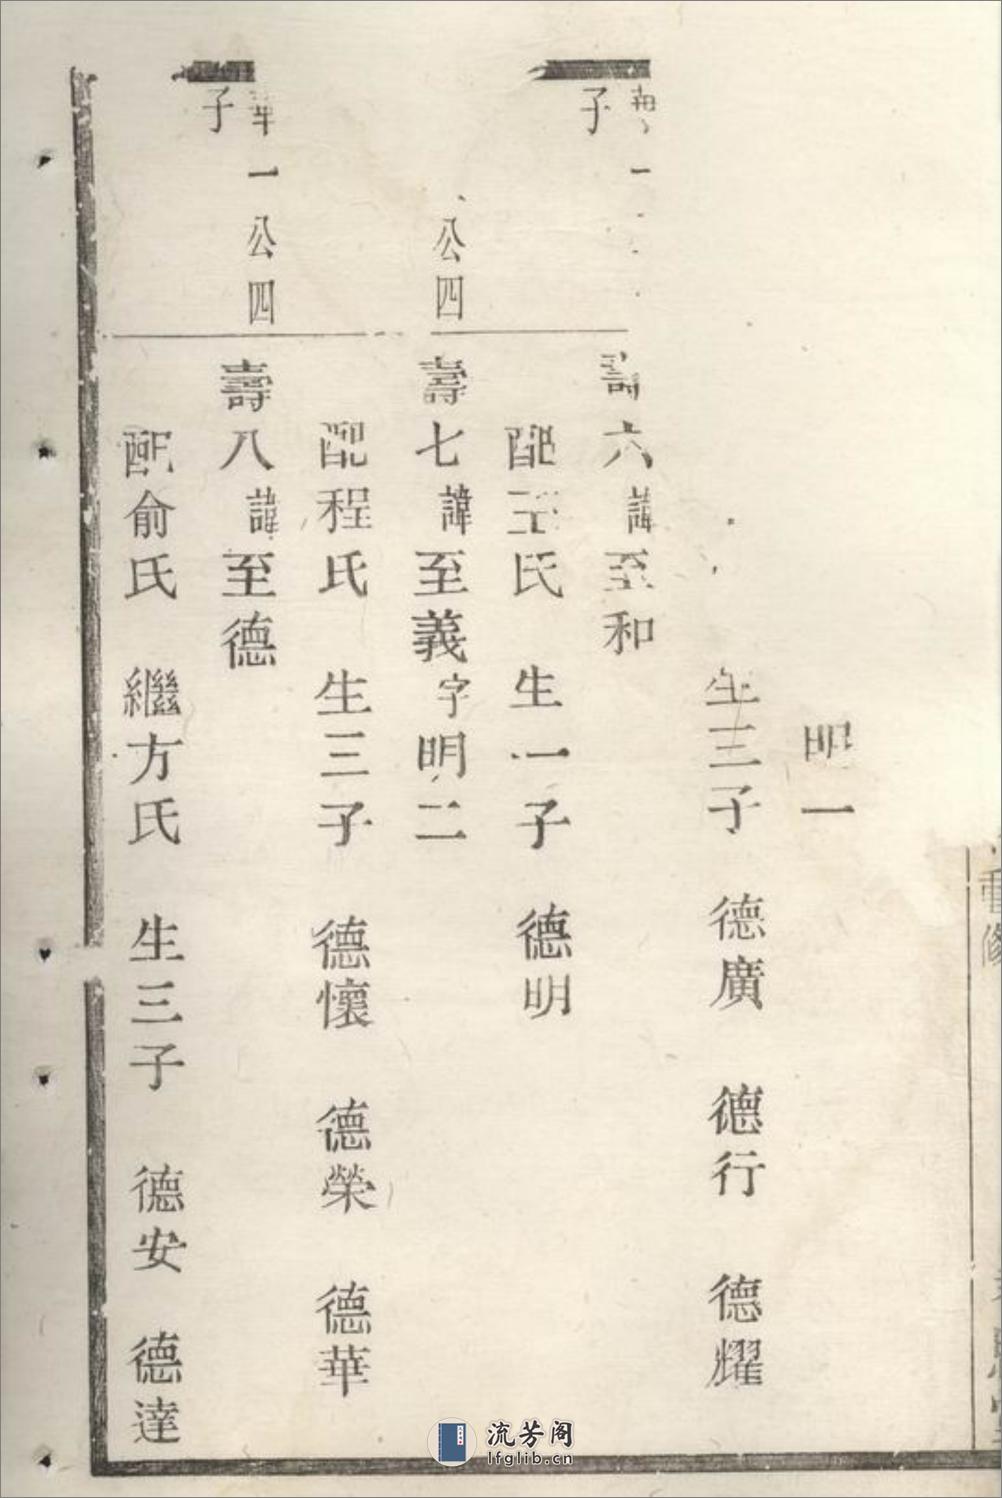 重修
明一
生三子 德廣 德行 德耀
一
子
壽六諱至和
配王氏 生一子 德明
公四
壽七諱至義字明二
配程氏 生三子 德懷 德榮 德華
華一公四
子
壽八諱至德
配俞氏 繼方氏 生三子 德安 德達
流芳阁
lfglib.cn